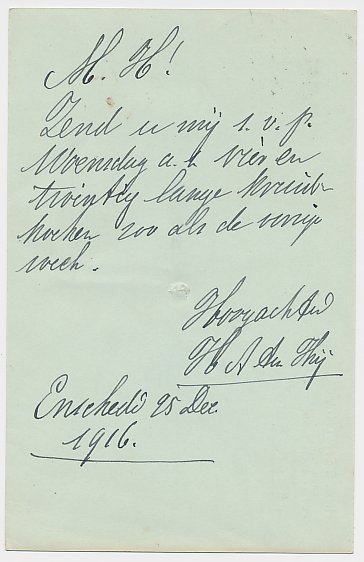 M. H!
Zend u mij s. v. p.
Woensdag a. s. vier en
twintig lange kruid-
koeken zoo als de vorige
week.
Hoogachtend
H A
Enschedé 25 Dec
1916.